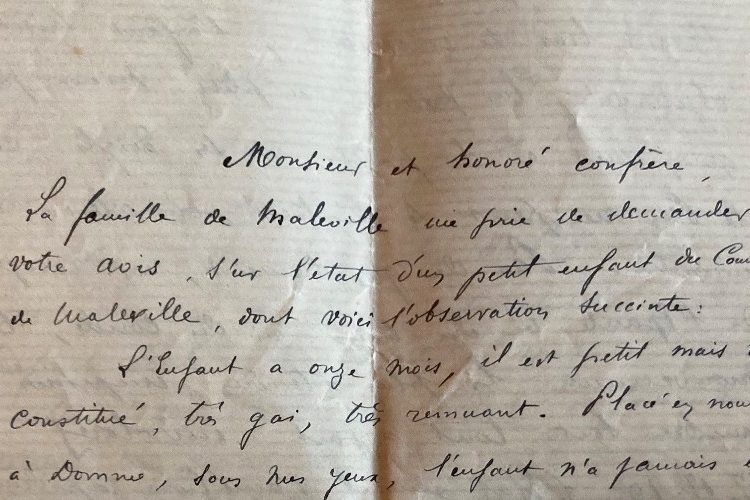 Monsieur et honoré confrère,
La famille de Maleville me prie de demander
votre avis, sur l'état d'un petit enfant du Com
de Maleville, dont voici l'observation succinte :
L'Enfant a onze mois, il est petit mais
constitué, très gai, très remuant. Placé en nou
à Domme, sous mes yeux, l'enfant n'a jamais